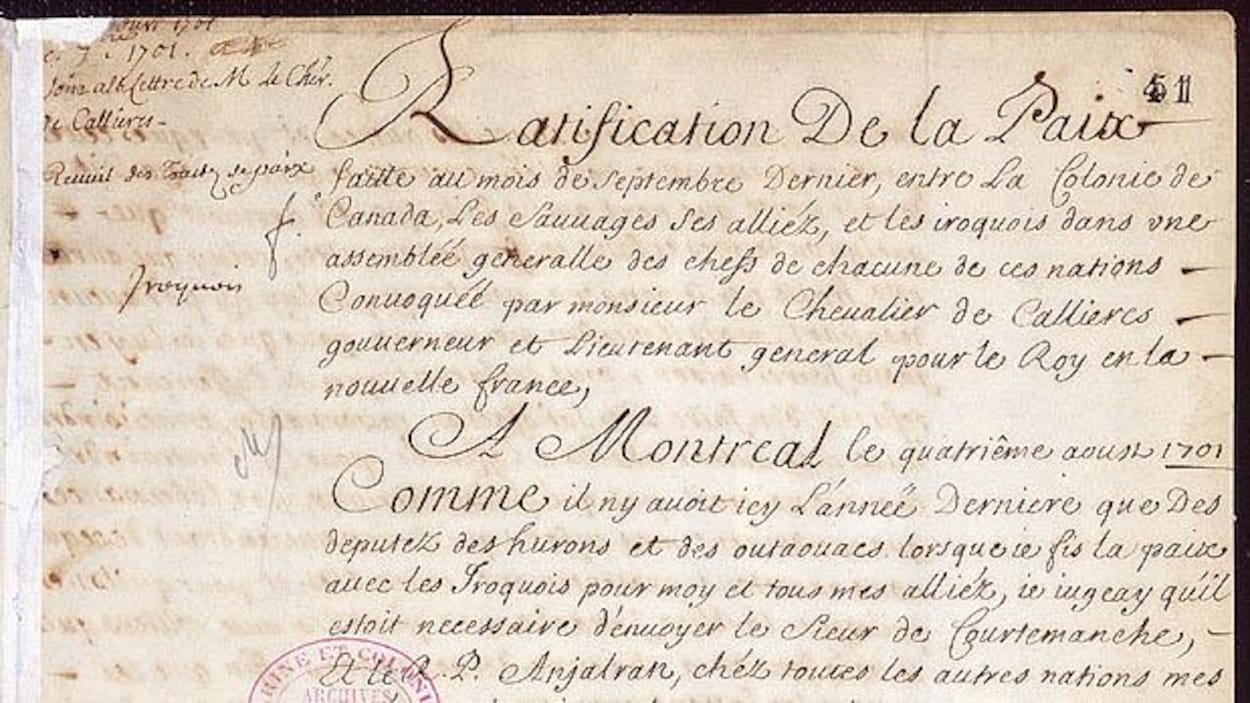 1701.
Joint à la Lettre de M. le Chev.
de Callieres-
Recueil des Traitez de paix
Iroquois
51
Ratification De la Paix
faitte au mois de septembre Dernier, entre La Colonie de
Canada, Les Sauvages Ses alliéz, et les iroquois dans vne
assembléé generalle des chefs de chacune de ces nations
Conuoquéé par monsieur le Cheualier de Callieres
gouuerneur et Lieutenant general pour le Roy en la
nouuelle france,
A Montreal le quatriême aoust 1701
Comme il ny auoit icy L'anneé Derniere que Des
deputez des hurons et des outaouacs lorsque ie fis la paix
auec les Iroquois pour moy et tous mes alliéz, ie iugeay qu'il
estoit necessaire d'enuoyer le Sieur de Courtemanche,
Et le R. P. Anjalran, chéz toutes les autres nations mes
MARINE ET COLONI
ARCHIVES